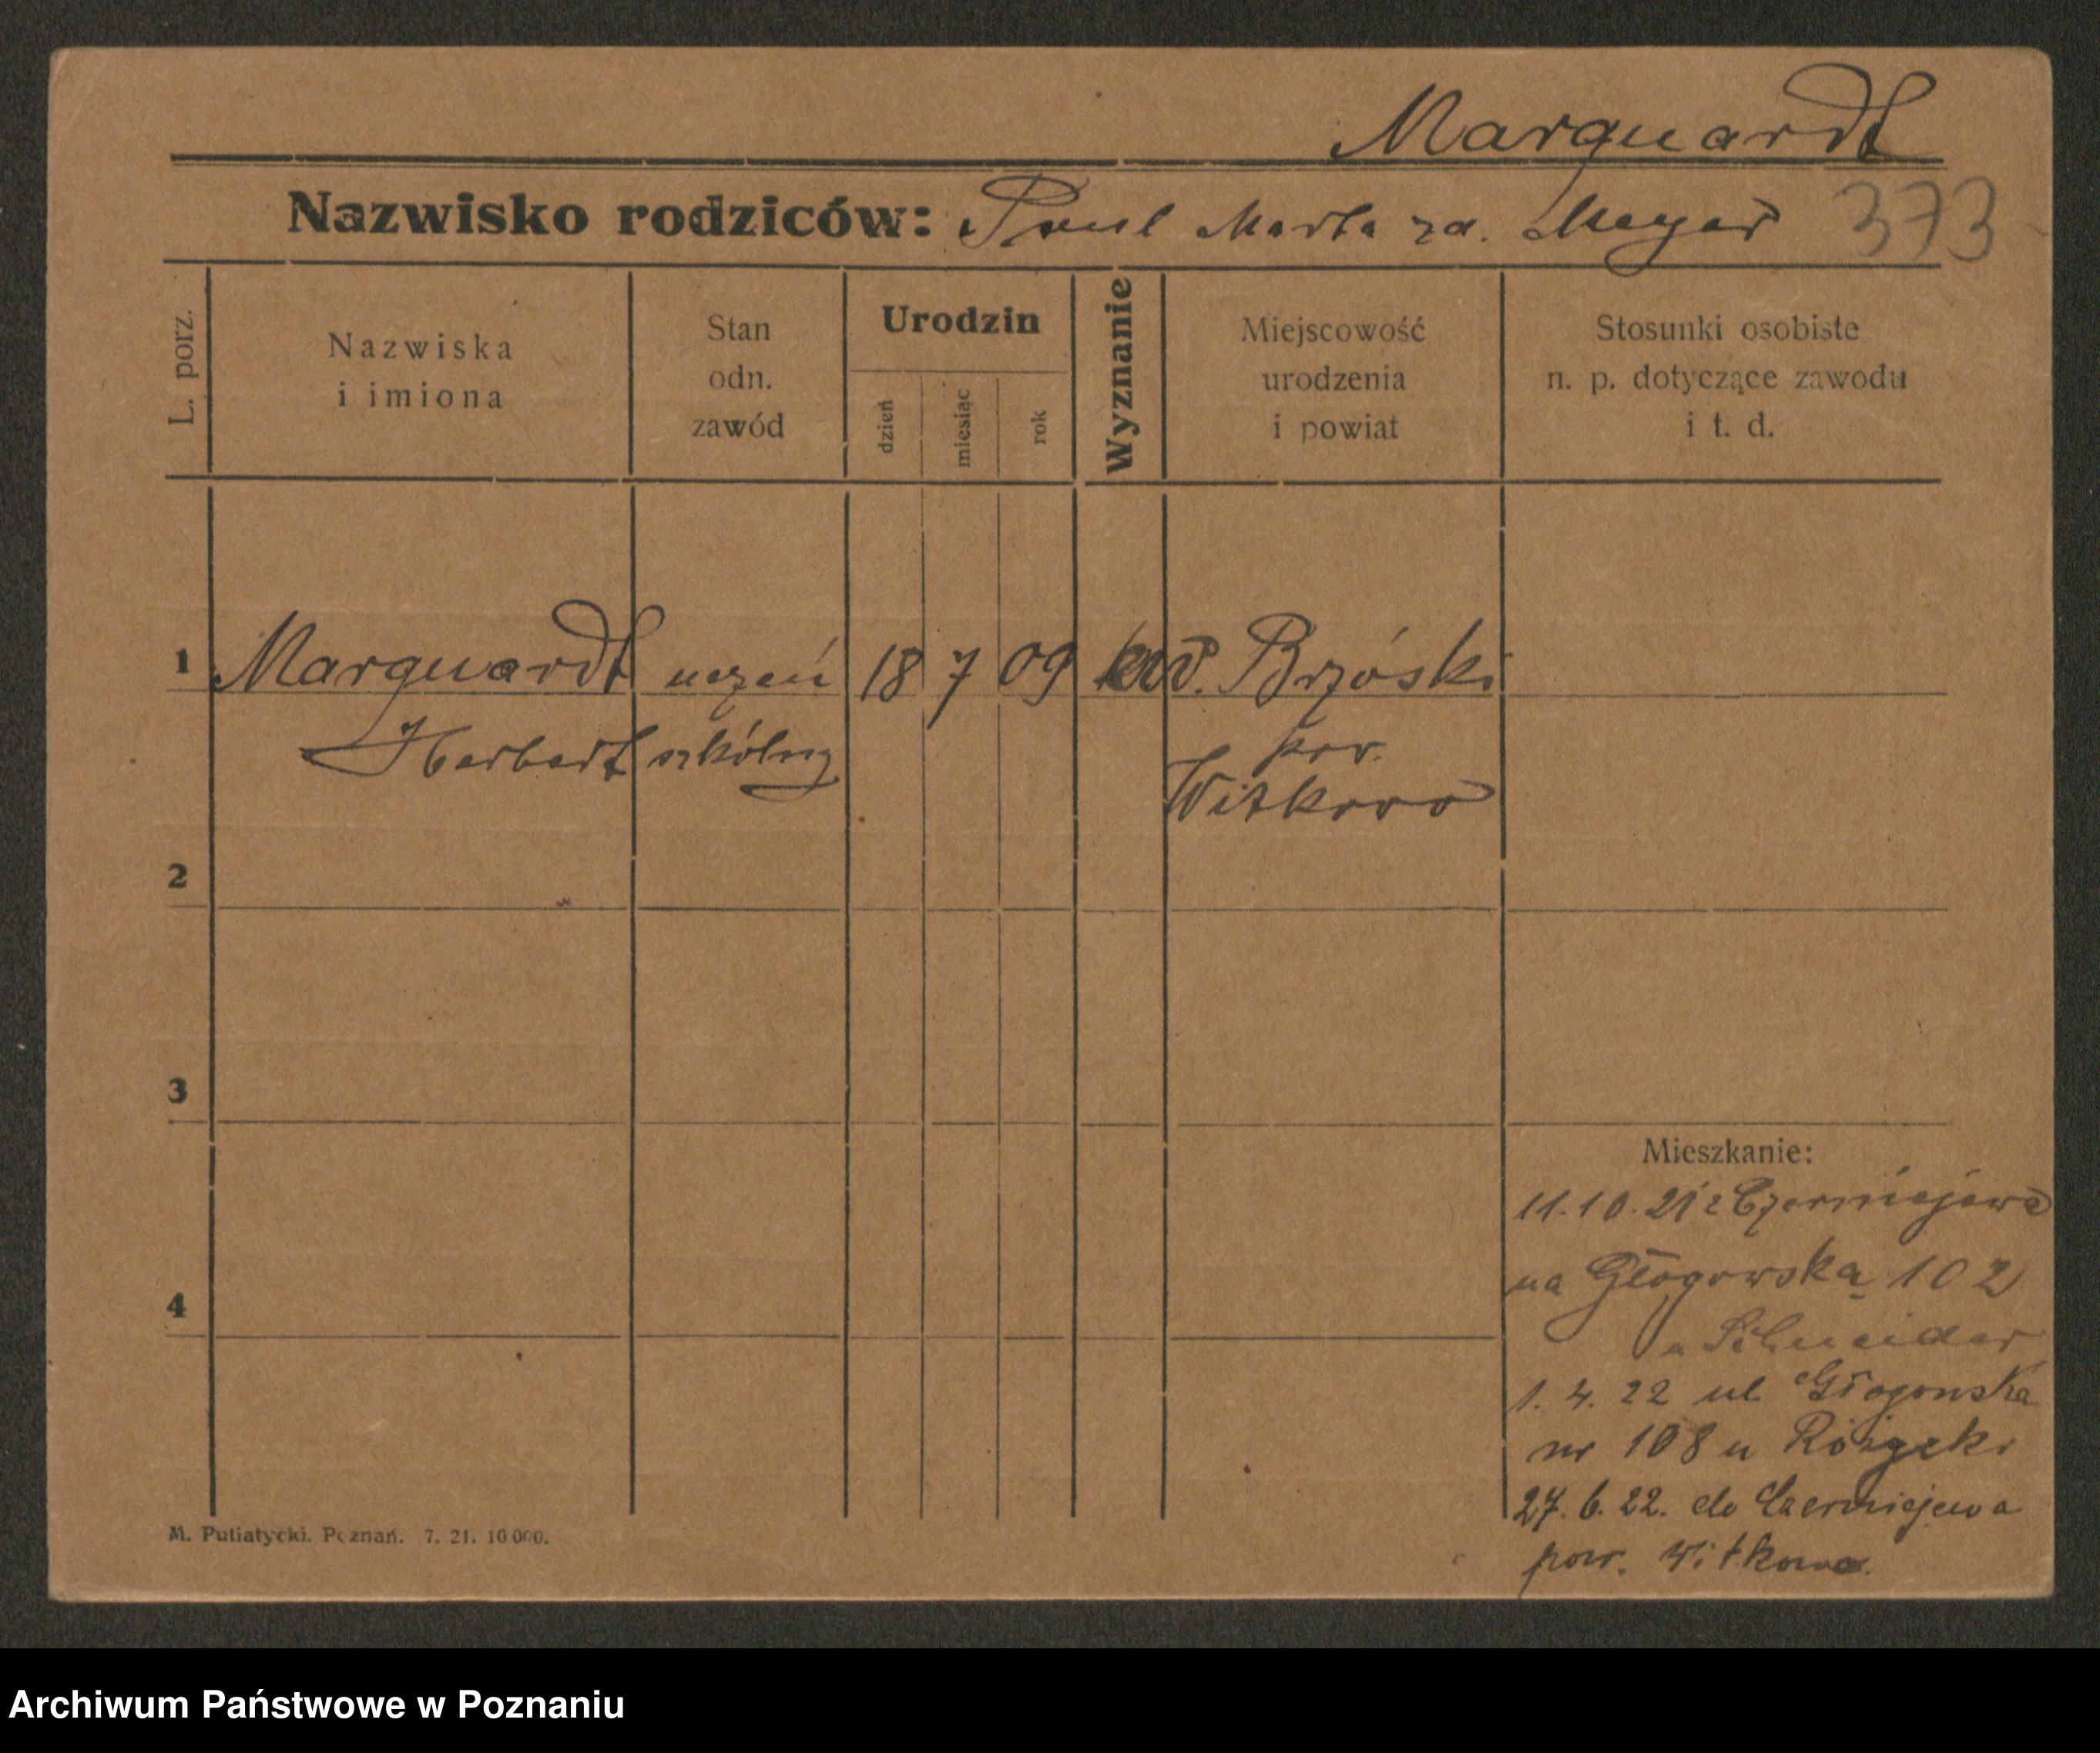 Marquardt
Nazwisko rodziców: Paul Marta za. Meyer 373
L. porz.
Nazwiska
i imiona
Stan
odn.
zawód
Urodzin
dzień
miesiąc
rok
Wyznanie
Miejscowość
urodzenia
i powiat
Stosunki osobiste
n. p. dotyczące zawodu
i t. d.
1 Marquardt uczeń 18 7 09 Brzóski
Herbert szkólny pow.
Witkowo
2
3
Mieszkanie:
11.10.21 z Czerniejewa
na Głogowską 102
4
u Schneider
1. 4. 22 ul. Głogowska
nr 108 u
27. 6. 22. do Czerniejewa
pow. Witkowo.
M. Putiatycki. Poznań. 7. 21. 10 000.
Archiwum Państwowe w Poznaniu